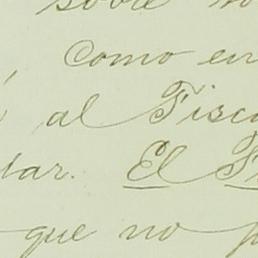 sobre
Como en
al Fisc
dar. El F
que no p